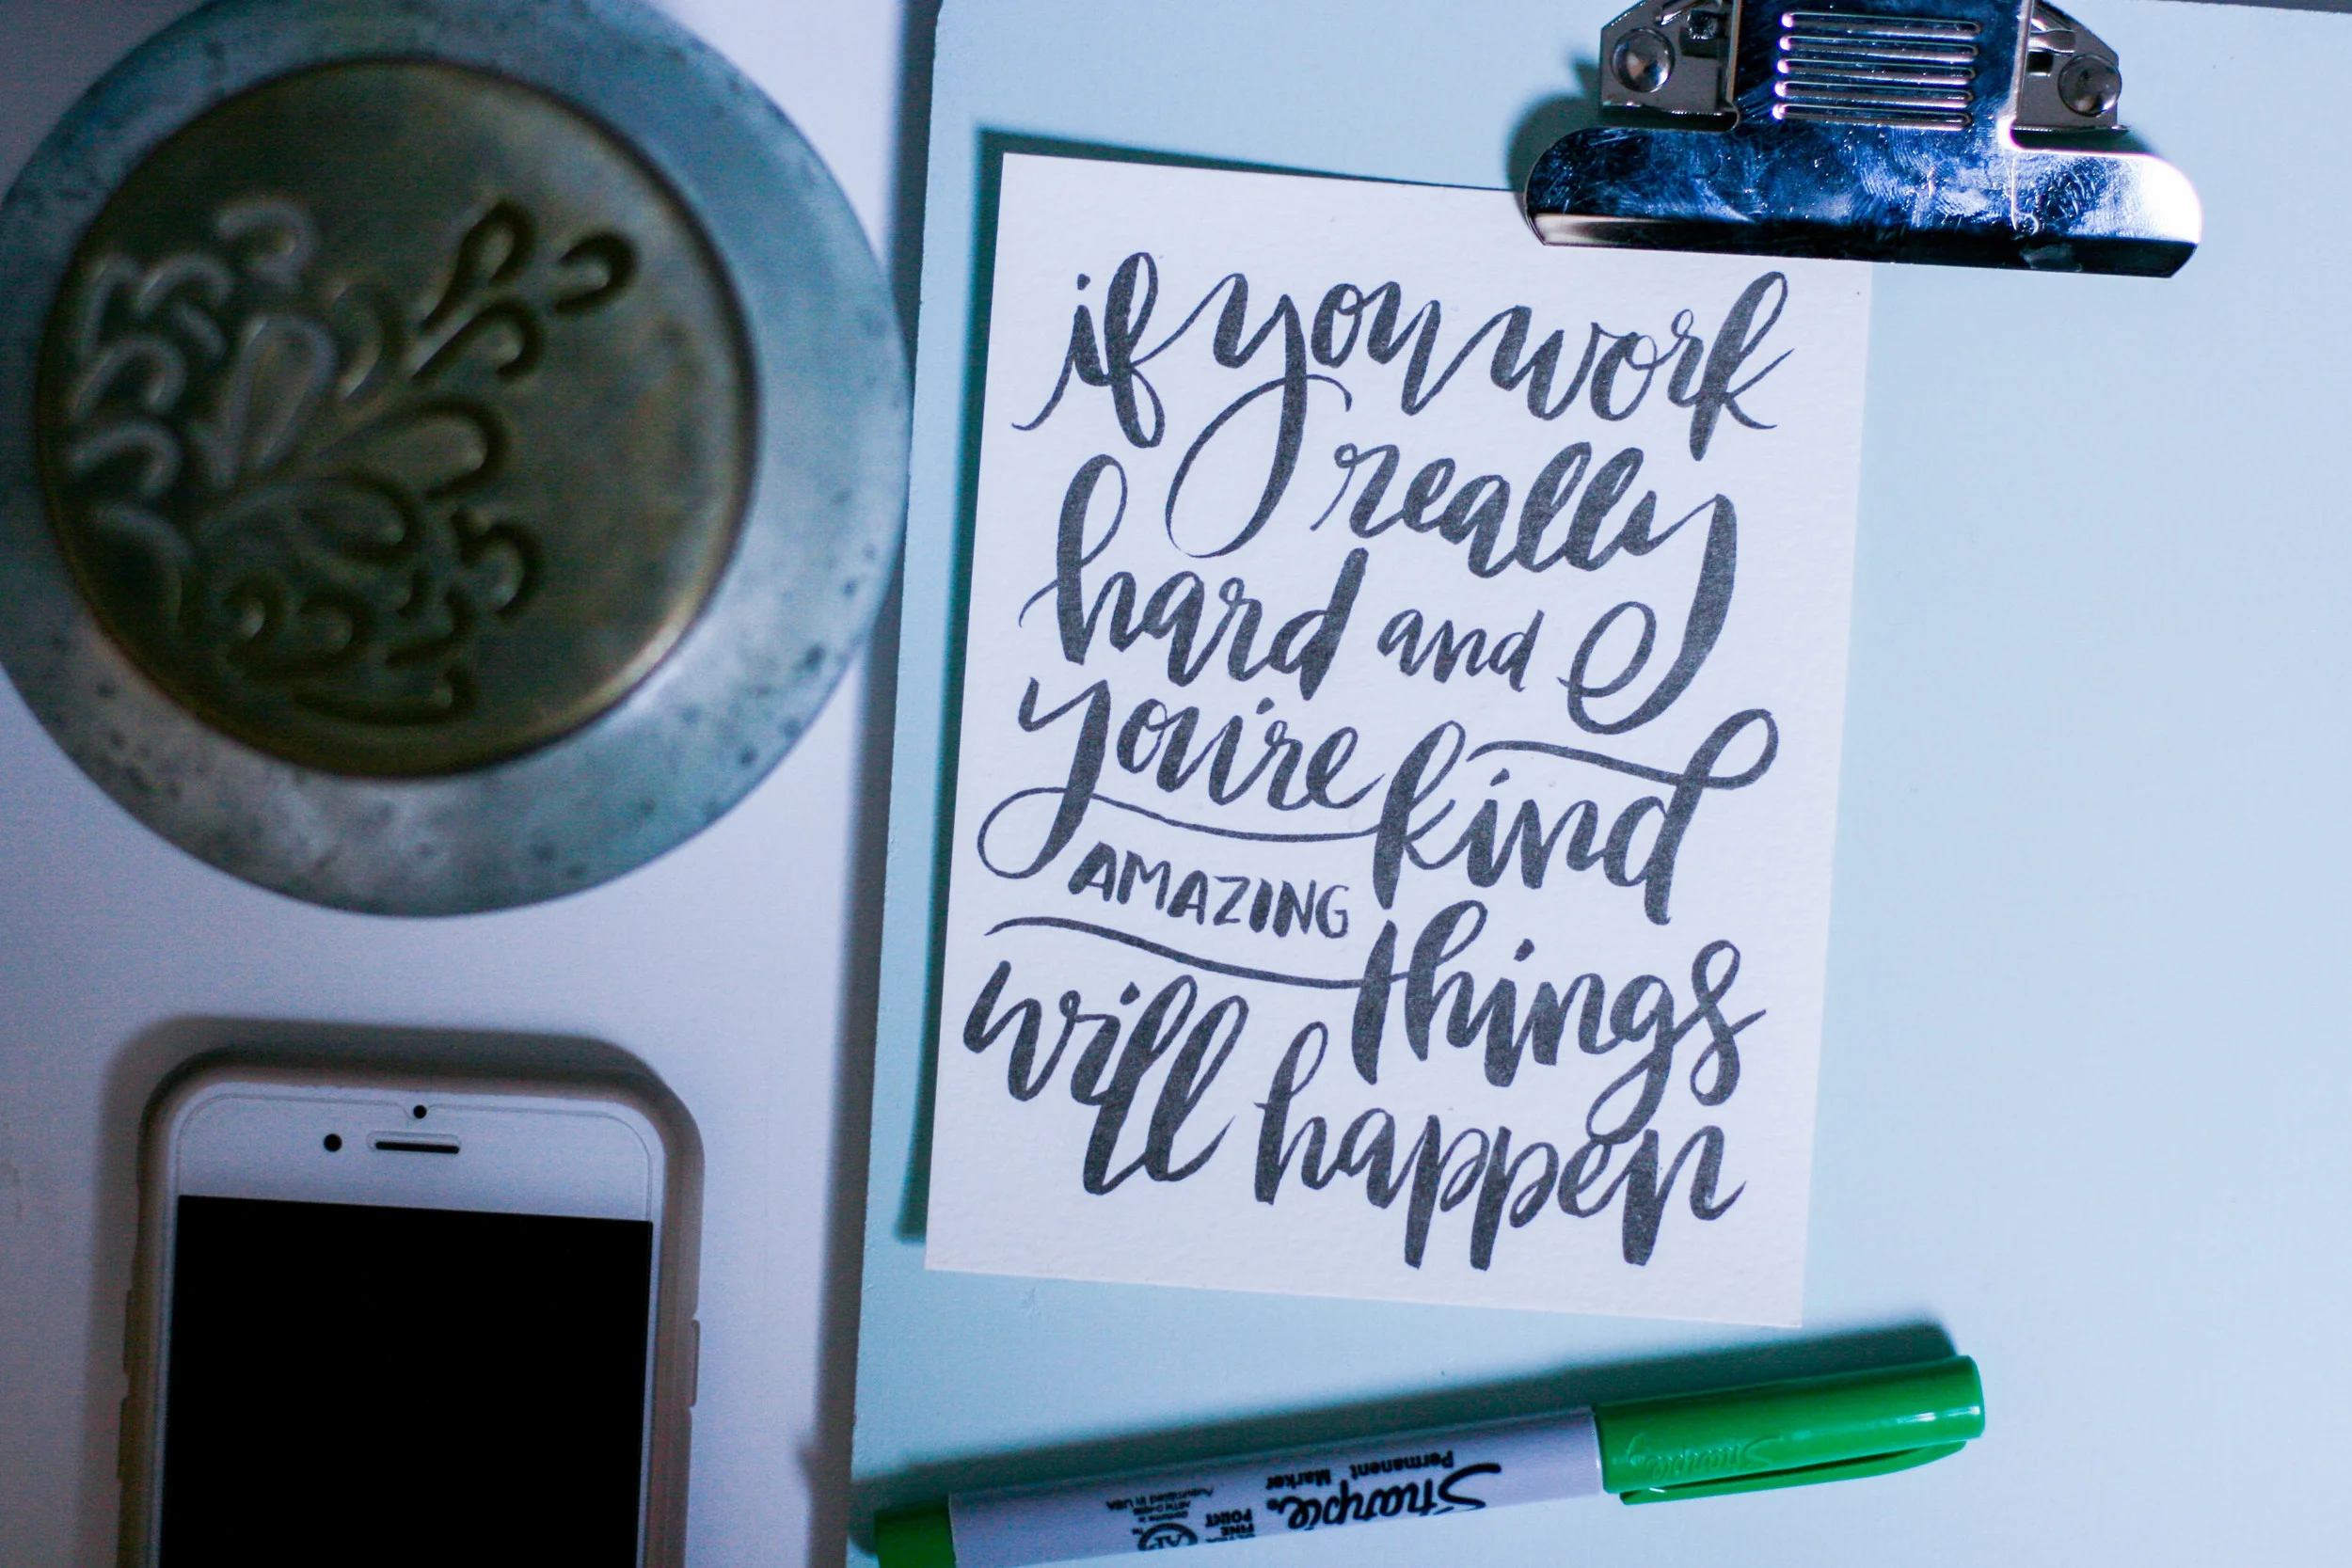 if you work
really
hard and
you're kind
AMAZING
things
will happen
Sharpie
Permanent
Marker
FINE
POINT
Sharpie